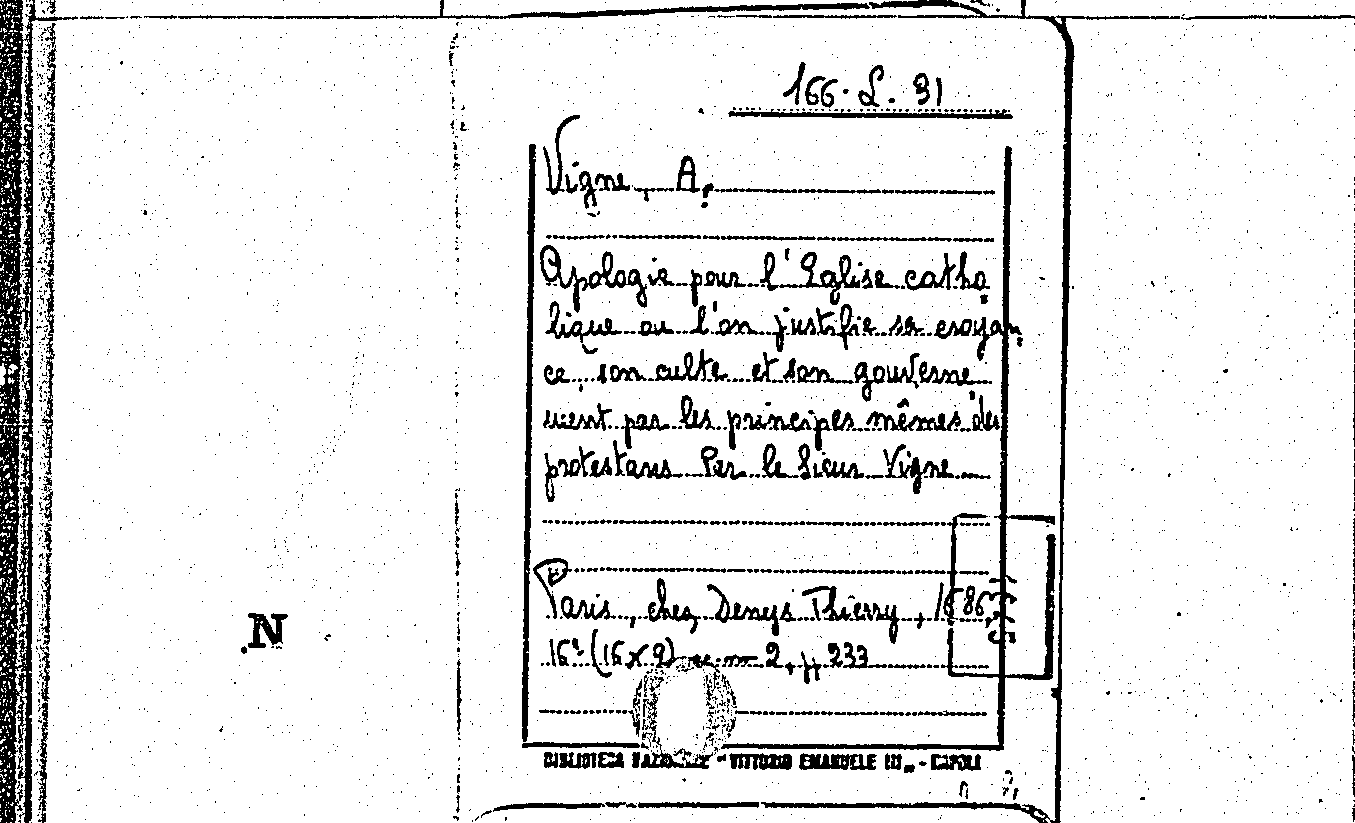 166. L. 31
Vigne, A.
Apologie pour l'Eglise catho
lique ou l'on justifie sa croyan
ce, son culte et son gouverne
ment par les principes mêmes des
protestans Par le Sieur Vigne
Paris, chez Denys Thierry, 1686,
16° (16x9) 2, 233
N
BIBLIOTECA NAZIONALE "VITTORIO EMANUELE III" - NAPOLI